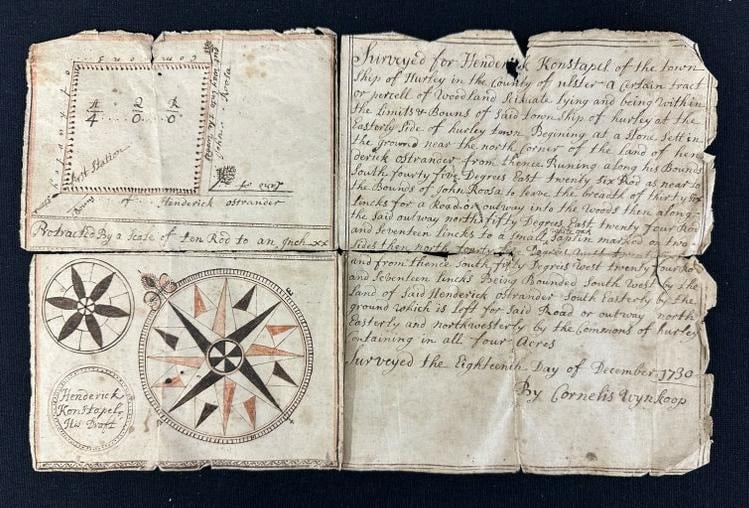 Commons
A R R
4 .. 0 .. 0
first Station
Bounds
of Henderick ostrander
John Roosa
Protracted By a Scale of ten Rod to an Inch xx
Henderick
Konstapel
His Draft
Surveyed for Henderick Konstapel of the town
Ship of Hurley in the County of ulster a Certain tract
or percell of Woodland Scituate lying and being within
the limits & Bouns of Said township of hurley at the
Easterly Side of hurley town Begining at a Stone Sett in
the ground near the north Corner of the land of hen
derick ostrander from thence Runing along his Bounds
South fourty five Degrees East twenty Six Rod as near to
the Bounds of John Roosa to leave the breadth of thirty Six
lincks for a Road or outway into the Woods then along
the said outway north fifty Degrees East twenty four Rod
and Seventeen lincks to a Small Saplin marked on two
Sides then north fourty five Degrees West twenty
and from thence South fifty Degrees West twenty four Ro
and Seventeen lincks Being Bounded South west by the
land of Said Henderick ostrander South Easterly by the
ground which is left for Said Road or outway north
Easterly and northwesterly by the Commons of hurley
ontaining in all four Acres
Surveyed the Eighteenth Day of December 1730
By Cornelis Wynkoop